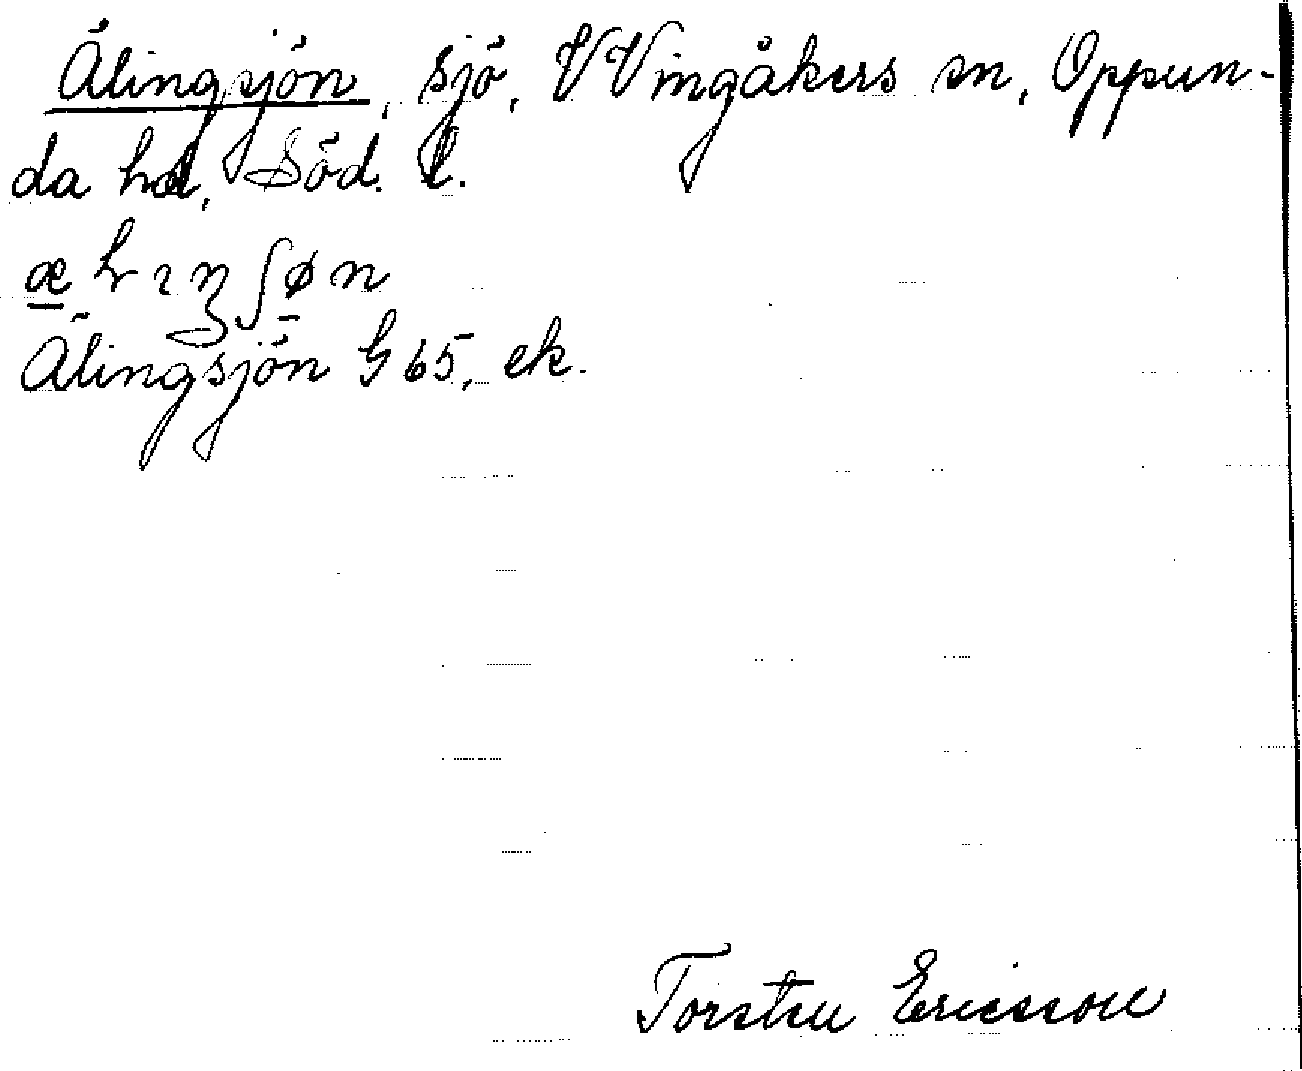 Älingsjön, sjö, V Vingåkers sn, Oppun-
da hd, Söd. l.
Älingsjön G 65, ek.
Torsten Ericsson